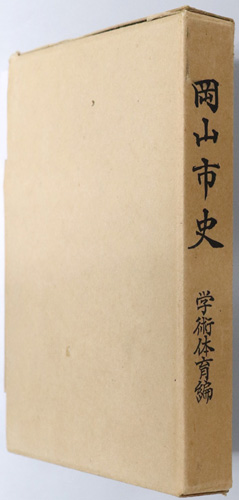 岡山市史
学術体育編